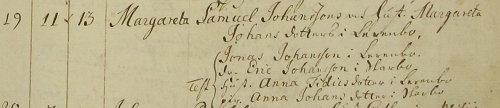 19 11 13 Margareta Samuel Johanssons och Hust. Margareta
Johans dotters i Lerenbo.
Jonas Johansson i Lerenbo.
Dr. Eric Johansson i Skarbo
Test. Hust. Anna Fidiesdotter i Lerenbo
pig. Anna Johans dotter i Skarbo